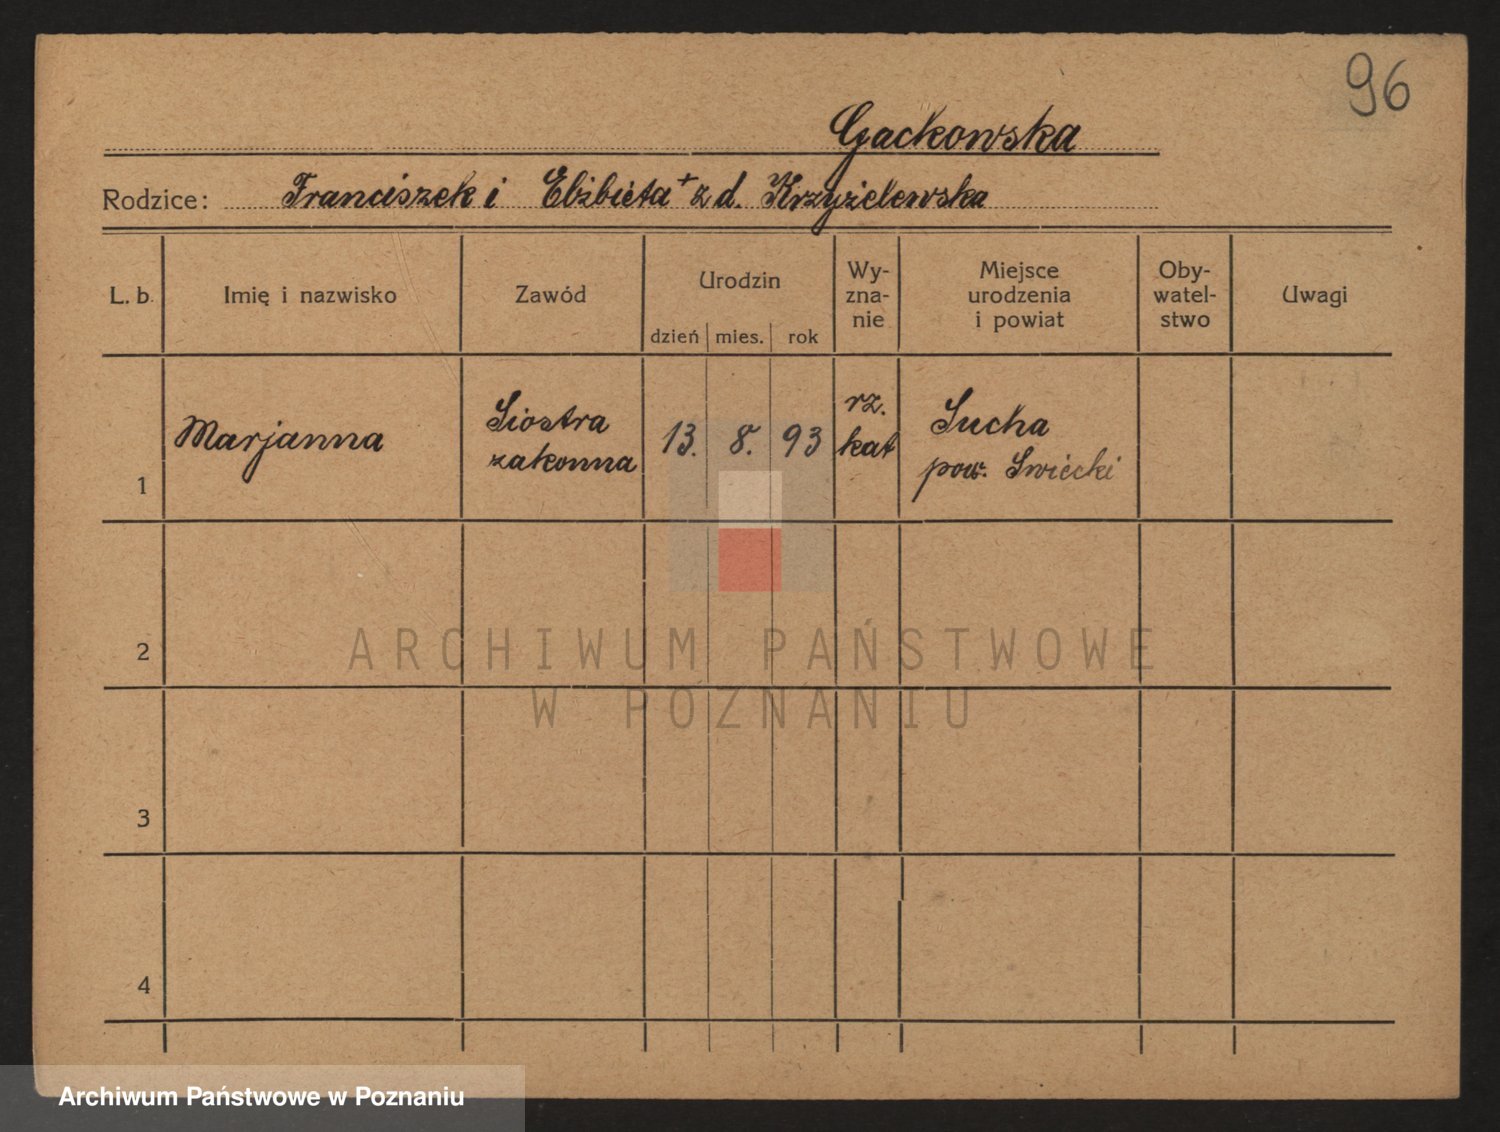 96
Gackowska
Rodzice: Franciszek i Elżbieta + z d. Krzyżelewska
L. b. Imię i nazwisko Zawód Urodzin Wy-zna-nie Miejsce urodzenia i powiat Oby-watel-stwo Uwagi
dzień mies. rok
1 Marjanna Siostra zakonna 13. 8. 93 rz. kat Sucha pow. Swiecki
2
ARCHIWUM PAŃSTWOWE
W POZNANIU
3
4
Archiwum Państwowe w Poznaniu